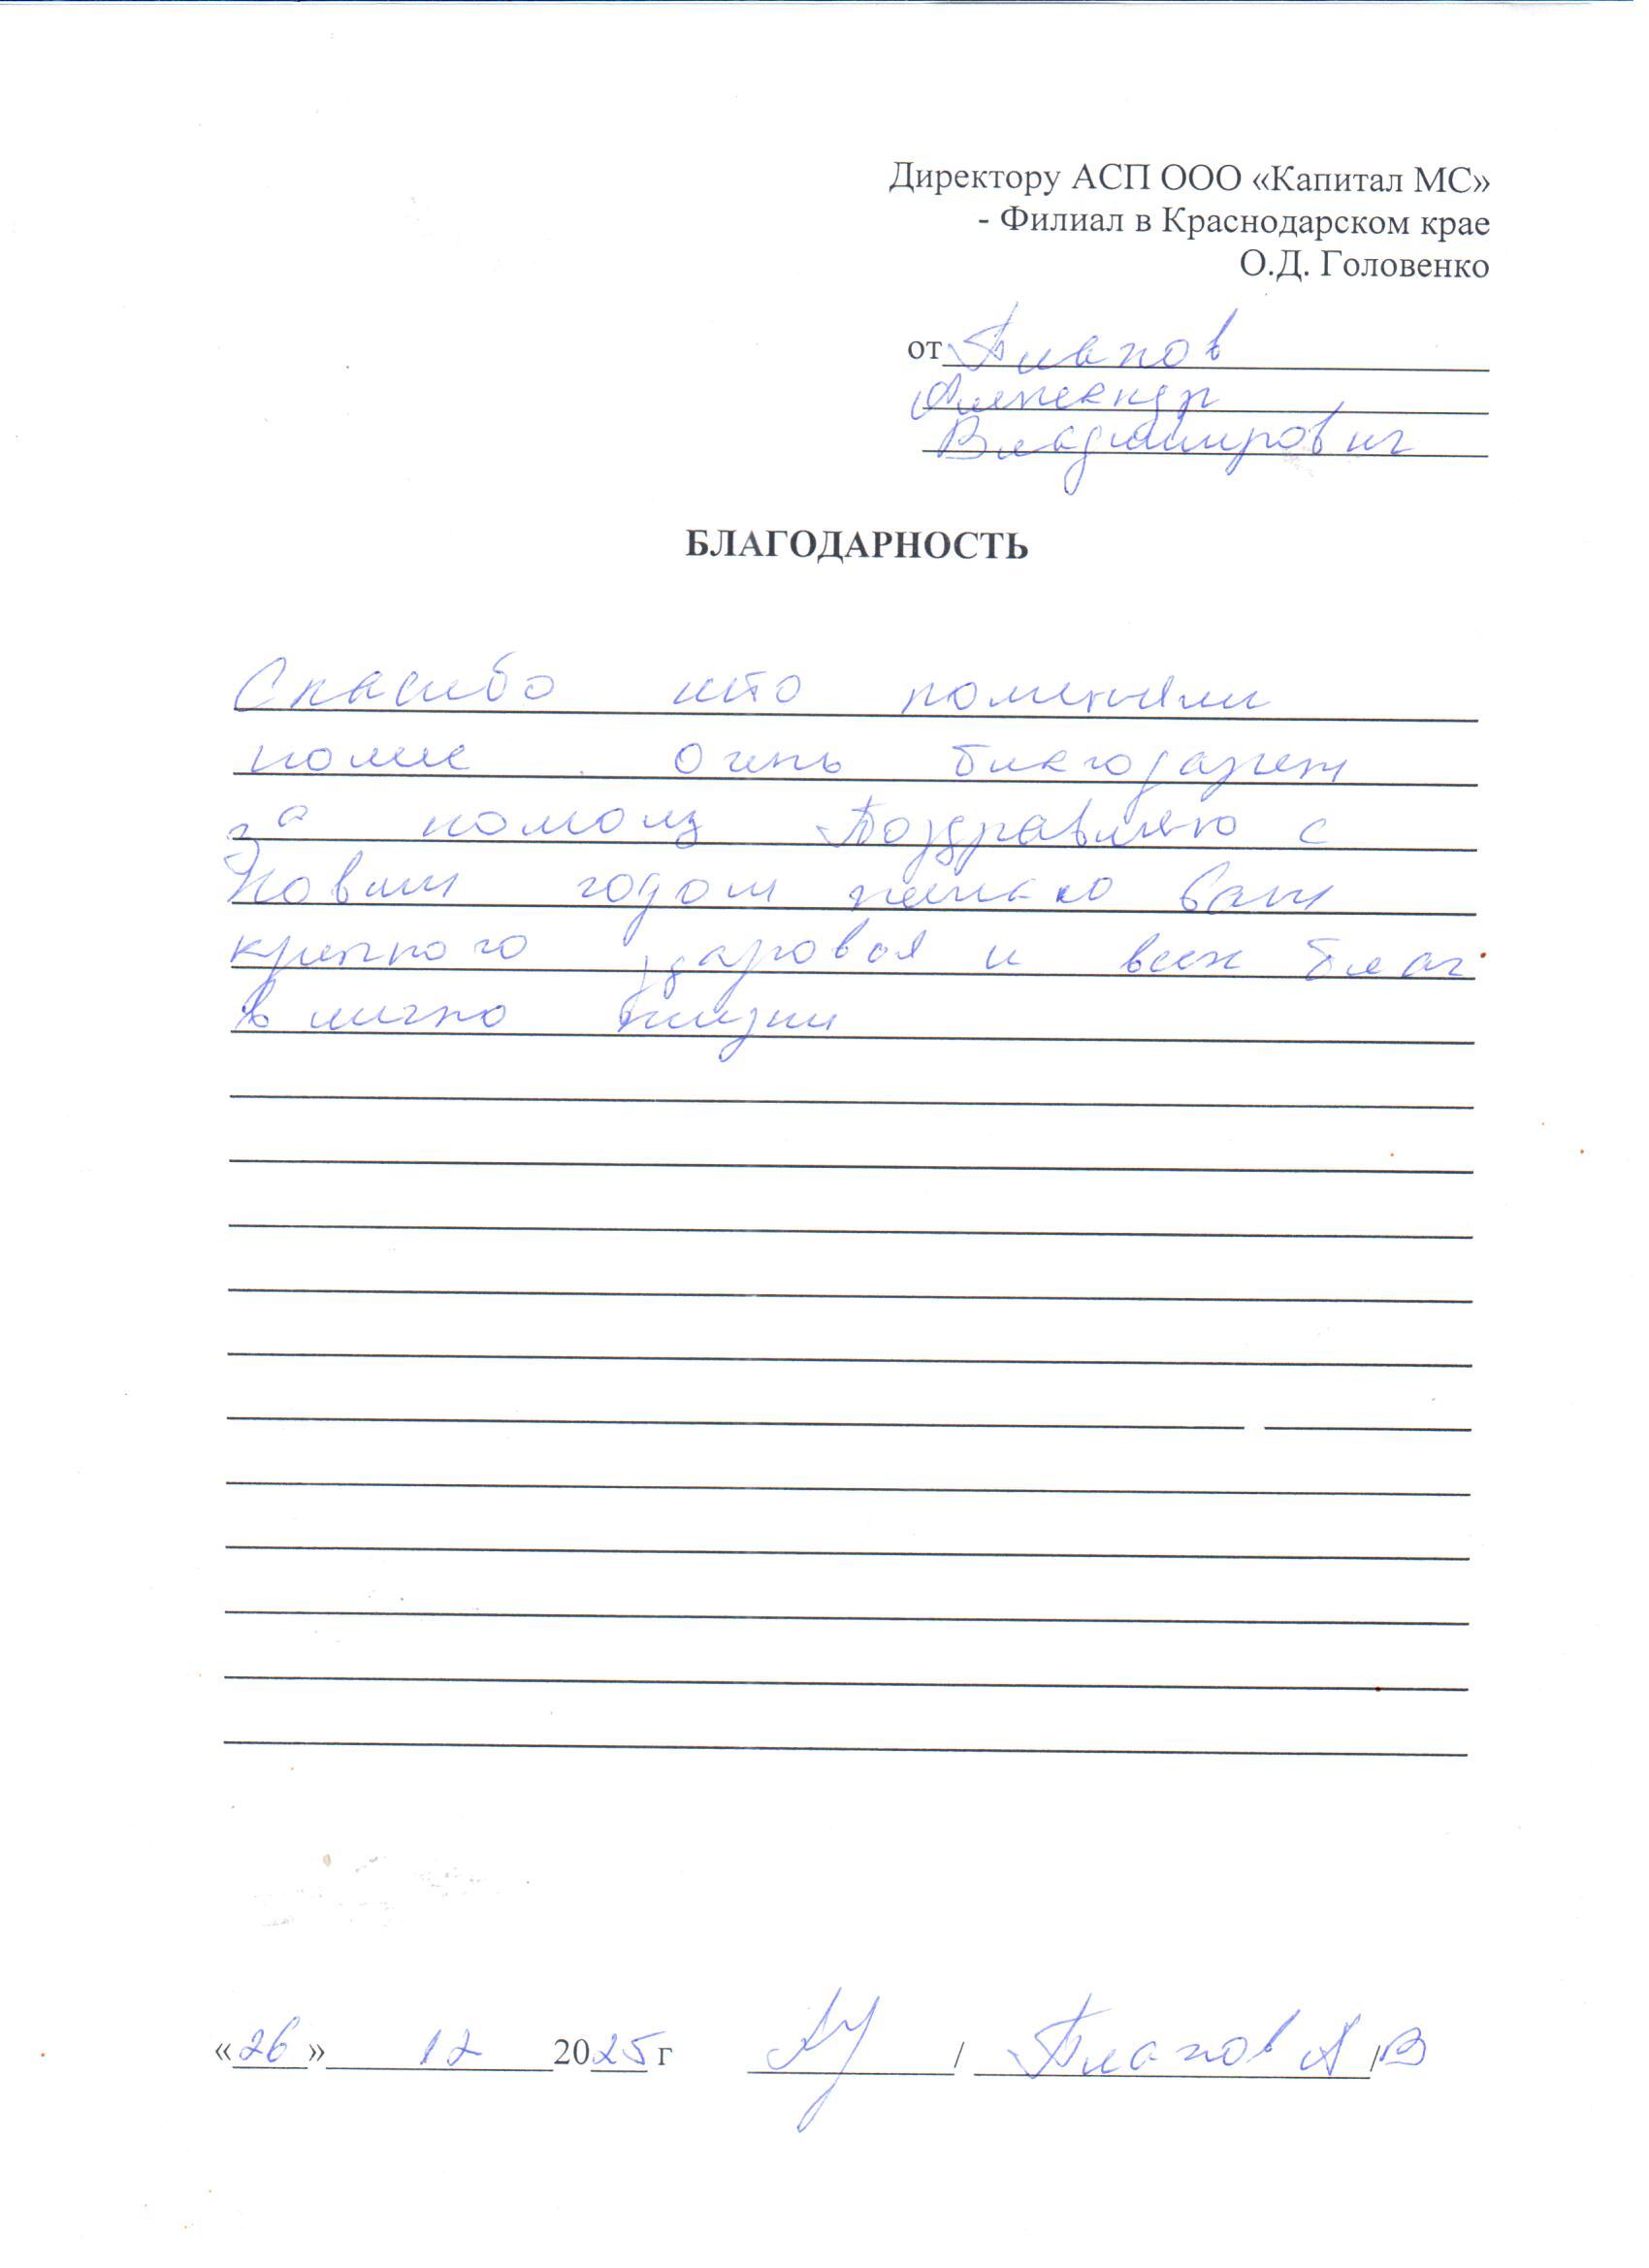 Директору АСП ООО «Капитал МС»
- Филиал в Краснодарском крае
О.Д. Головенко
от
Александр
Владимирович
БЛАГОДАРНОСТЬ
Спасибо что поменяли
полис Очень благодарен
за Поздравляю с
Новым годом желаю вам
крепкого здаровья и всех благ
в лично жизни
«26» 12 2025 г / А В /